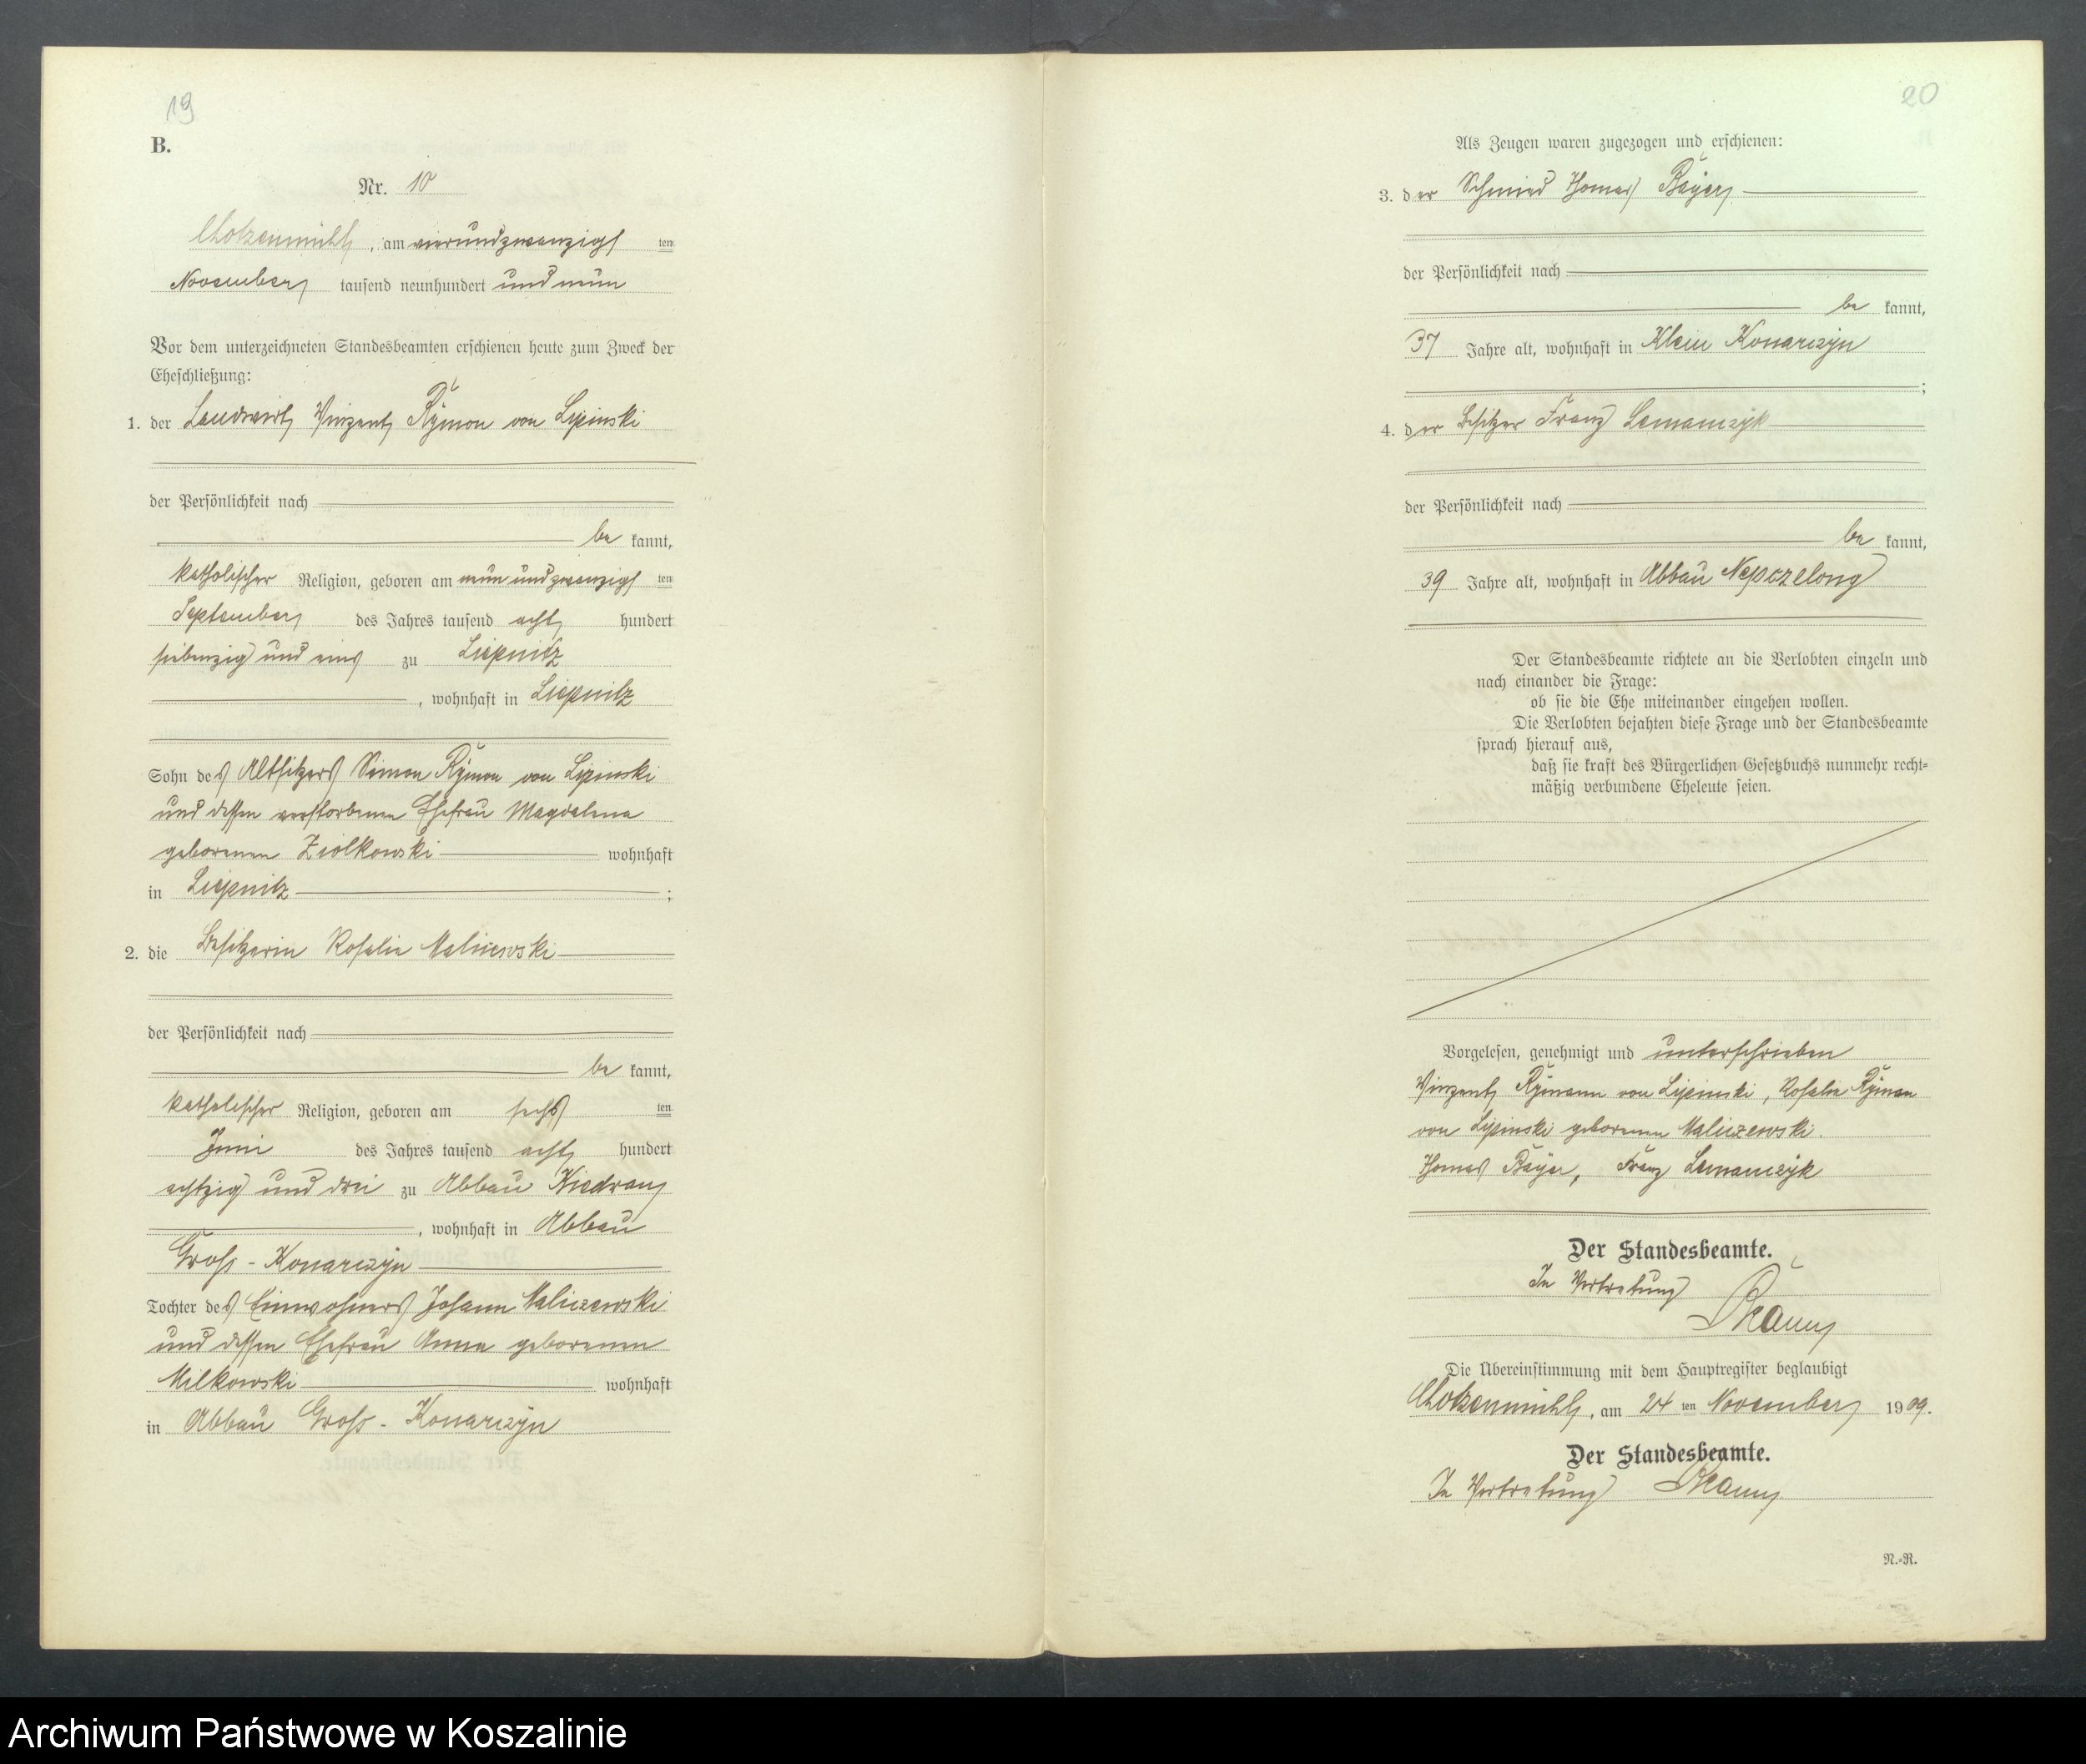 19
B.
Nr. 10
Chotzenmühl, am vierundzwanzigsten
November tausend neunhundert und neun
Vor dem unterzeichneten Standesbeamten erschienen heute zum Zweck der
Eheschließung:
1. der Landwirt Vinzent Rÿmon von Lipinski
der Persönlichkeit nach
be kannt,
katholischer Religion, geboren am neunundzwanzigsten
September des Jahres tausend acht hundert
siebenzig und eins zu Liepnitz
, wohnhaft in Liepnitz
Sohn des Altsitzers Simon Rÿmon von Lipinski
und dessen verstorbenen Ehefrau Magdalena
geborenen Ziolkowski wohnhaft
in Liepnitz ;
2. die Besitzerin Rosalie Maliczewski
der Persönlichkeit nach
be kannt,
katholischer Religion, geboren am sechsten
Juni des Jahres tausend acht hundert
achtzig und drei zu Abbau Kiedrau
, wohnhaft in Abbau
Gross-Konarczyn
Tochter des Einwohners Johann Maliczewski
und dessen Ehefrau Anna geborenen
Milkowski wohnhaft
in Abbau Gross-Konarczyn
20
Als Zeugen waren zugezogen und erschienen:
3. der Schmied Thomas Bayer
der Persönlichkeit nach
be kannt,
37 Jahre alt, wohnhaft in Klein Konarczyn
;
4. der Besitzer Franz Lemanczyk
der Persönlichkeit nach
be kannt,
39 Jahre alt, wohnhaft in Abbau Nepczelong
Der Standesbeamte richtete an die Verlobten einzeln und
nach einander die Frage:
ob sie die Ehe miteinander eingehen wollen.
Die Verlobten bejahten diese Frage und der Standesbeamte
sprach hierauf aus,
daß sie kraft des Bürgerlichen Gesetzbuchs nunmehr recht-
mäßig verbundene Eheleute seien.
Vorgelesen, genehmigt und unterschrieben
Vinzent Rÿmann von Lipinski, Rosalie Rÿmon
von Lipinski geborenen Maliczewski.
Thomas Bayer, Franz Lemanczyk
Der Standesbeamte.
In Vertretung
Die Übereinstimmung mit dem Hauptregister beglaubigt
Chotzenmühl, am 24 ten November 1909.
Der Standesbeamte.
In Vertretung
N.-R.
Archiwum Państwowe w Koszalinie